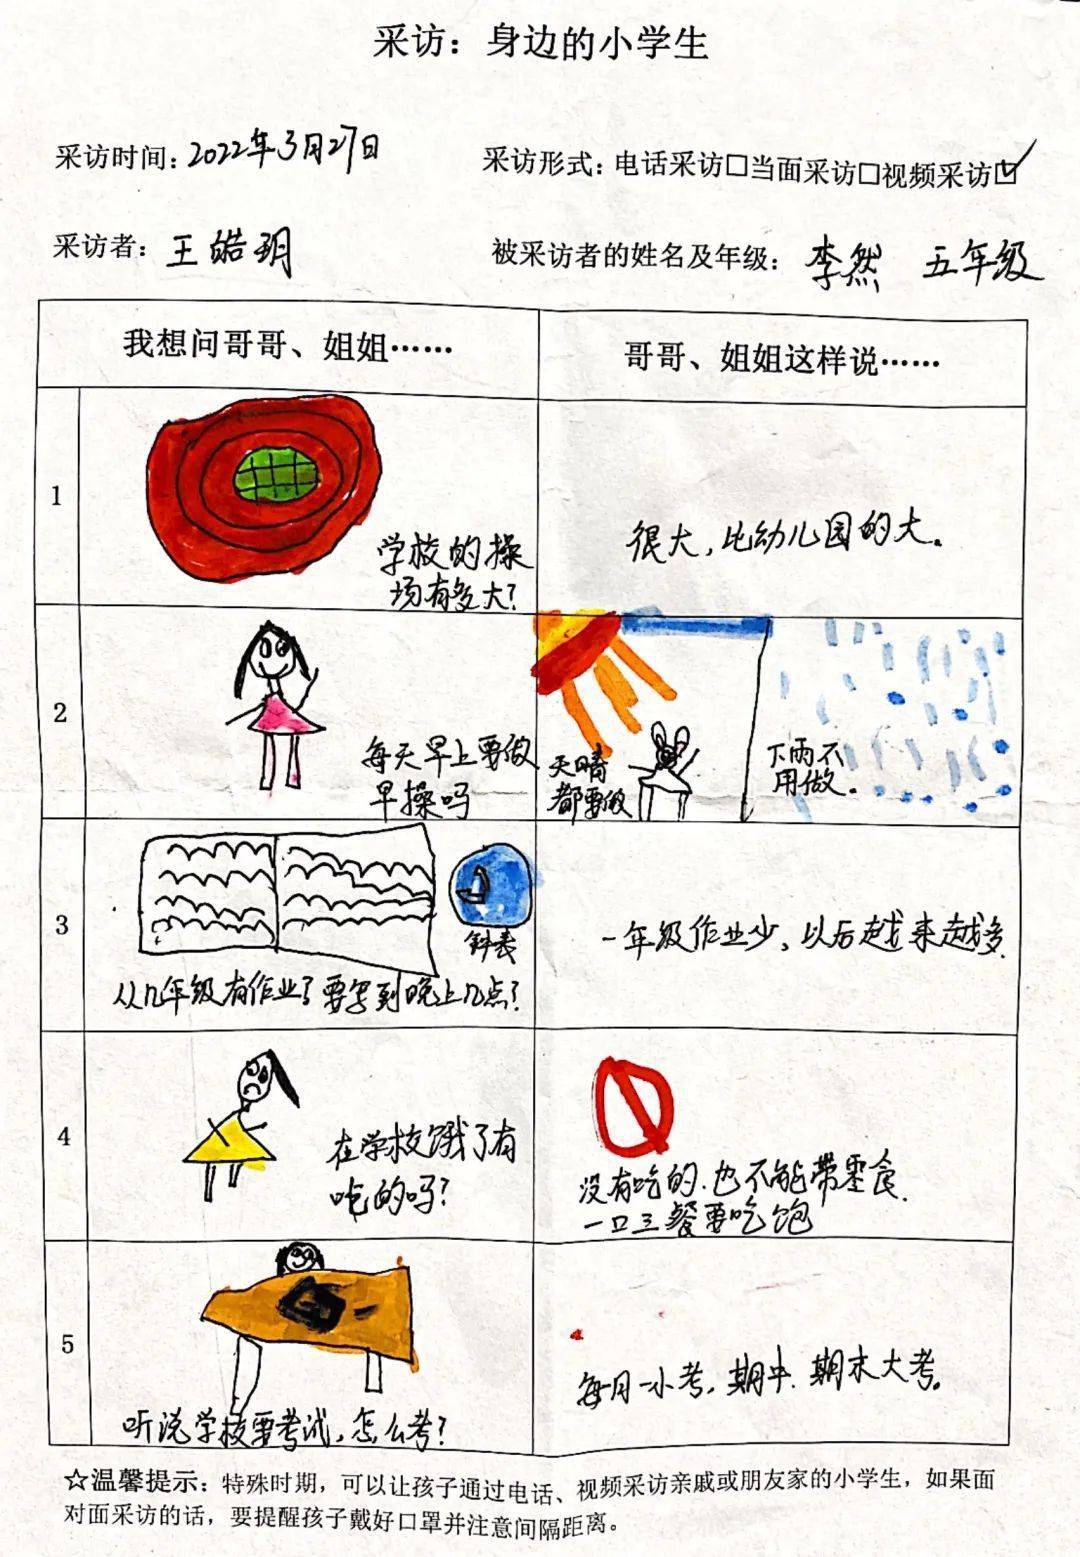 采访：身边的小学生
采访时间：2022年3月27日
采访形式：电话采访□当面采访□视频采访☑
采访者：王皓玥
被采访者的姓名及年级：李然 五年级
我想问哥哥、姐姐……
哥哥、姐姐这样说……
1
学校的操
场有多大？
很大，比幼儿园的大。
2
每天早上要做
早操吗
天晴
都要做
下雨不
用做。
3
钟表
从几年级有作业了要写到晚上几点？
一年级作业少，以后越来越多
4
在学校饿了有
吃的吗？
没有吃的.也不能带零食.
一口三餐要吃饱
5
听说学校要考试，怎么考？
每月一小考，期中.期末大考。
☆温馨提示：特殊时期，可以让孩子通过电话、视频采访亲戚或朋友家的小学生，如果面
对面采访的话，要提醒孩子戴好口罩并注意间隔距离。